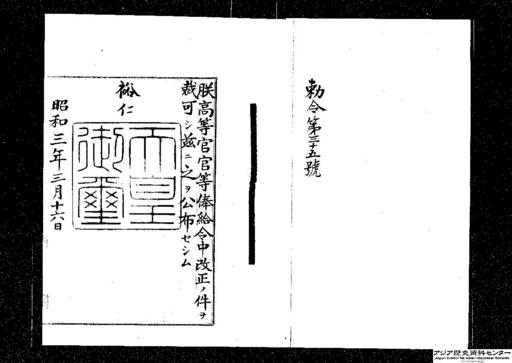 勅令第三十五號
朕高等官官等俸給令中改正ノ件ヲ
裁可シ茲ニ之ヲ公布セシム
裕仁
天皇御璽
昭和三年三月十六日
アジア歴史資料センター
Japan Center for Asian Historical Records